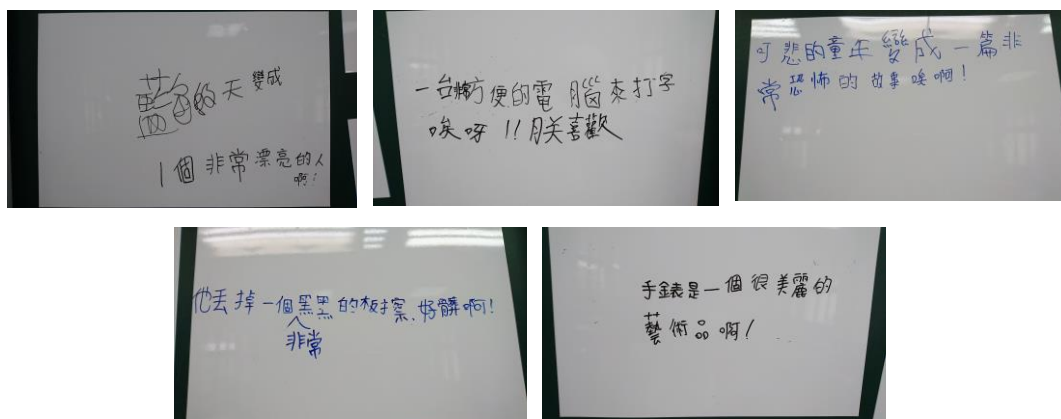 藍色的天變成
1個非常漂亮的人
啊!
一台方便的電腦來打字
唉呀!!朕喜歡
可悲的童年變成一篇非
常恐怖的故事唉啊!
他丟掉一個黑黑的板擦,好髒啊!
非常
手錶是一個很美麗的
藝術品啊!